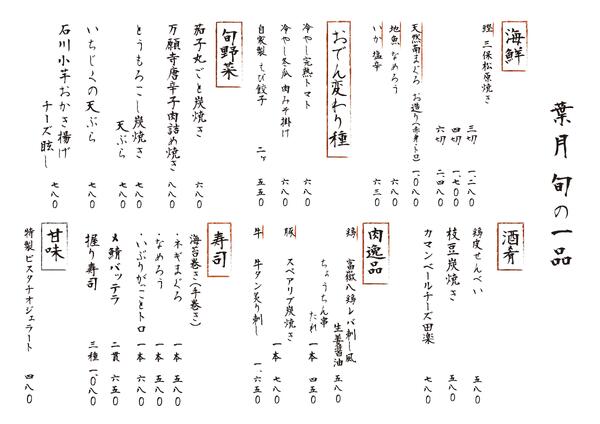 葉月 旬の一品
海鮮
鰹 三保松原焼き
三切 一、二八〇
四切 一、七〇〇
六切 二、四八〇
天然南まぐろ お造り(赤身・トロ) 一、〇八〇
地魚 なめろう 六八〇
いか 塩辛 六三〇
おでん変わり種
冷やし完熟トマト 六八〇
冷やし冬瓜 肉みそ掛け 六八〇
自家製 えび餃子 二ヶ 五五〇
旬野菜
茄子丸ごと炭焼き 六八〇
万願寺唐辛子肉詰め焼き 八八〇
とうもろこし炭焼き 七八〇
天ぷら 七八〇
いちじくの天ぷら 七八〇
石川小芋おかき揚げ
チーズ眩し 七八〇
酒肴
鶏皮せんべい 五八〇
枝豆炭焼き 五八〇
カマンベールチーズ田楽 七八〇
肉逸品
鶏 富嶽八鶏レバ刺し風
生姜醤油 五八〇
ちょうちん串
たれ 一本 四五〇
豚 スペアリブ炭焼き 一本 七八〇
牛 牛タン炙り刺し 一、六五〇
寿司
海苔巻き(手巻き)
・ネギまぐろ 一本 五八〇
・なめろう 一本 五八〇
・いぶりがっことトロ 一本 六八〇
〆鯖バッテラ 二貫 六五〇
握り寿司 三種 一、〇八〇
甘味
特製ピスタチオジェラート 四八〇